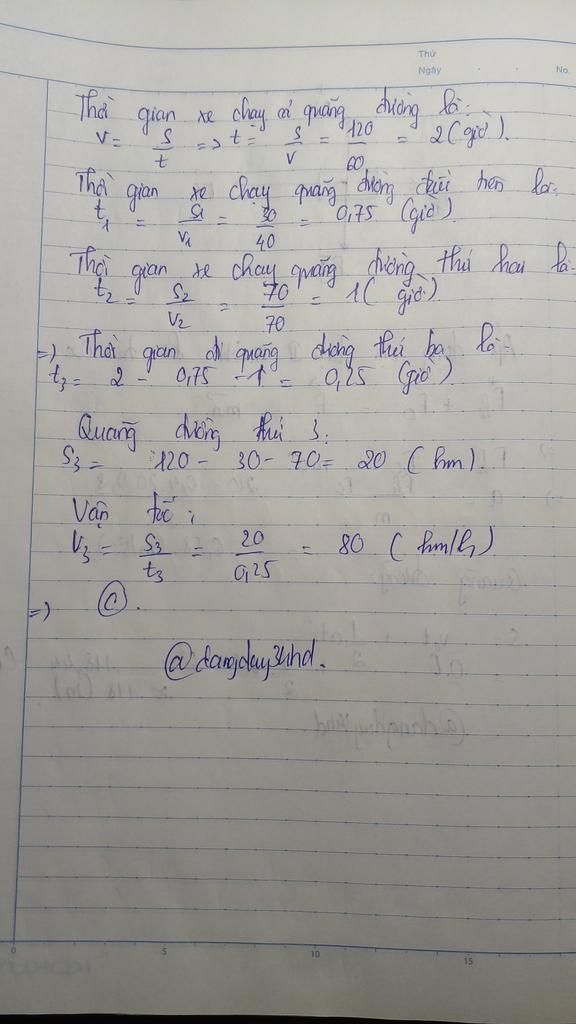 Thứ
Ngày No.
Thời gian xe chạy cả quãng đường là:
v = s/t => t = s/v = 120/60 = 2 (giờ).
Thời gian xe chạy quãng đường đầu tiên là:
t1 = s1/v1 = 30/40 = 0,75 (giờ).
Thời gian xe chạy quãng đường thứ hai là:
t2 = S2/V2 = 70/70 = 1 (giờ).
=) Thời gian đi quãng đường thứ ba là:
t3 = 2 - 0,75 - 1 = 0,25 (giờ)
Quãng đường thứ 3:
S3 = 120 - 30 - 70 = 20 (km).
Vận tốc:
V3 = S3/t3 = 20/0,25 = 80 (km/h)
=) C.
0 5 10 15